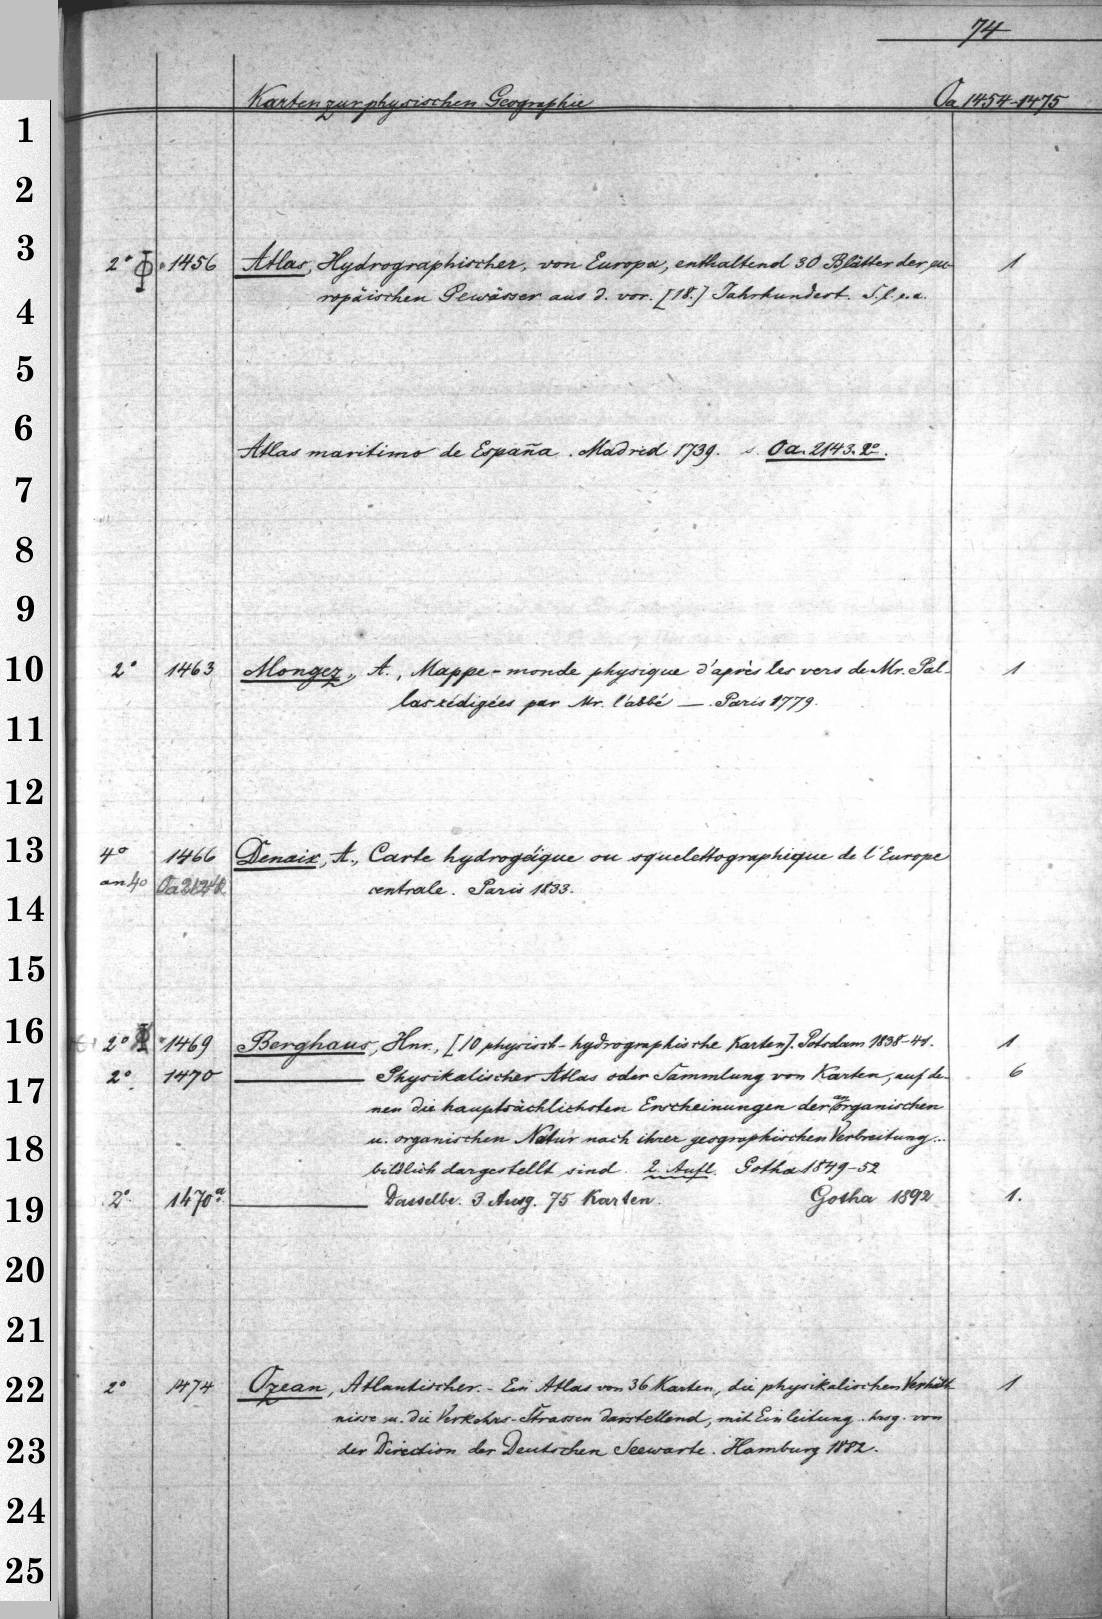 74
Karten zur physischen Geographie Oa 1454-1475
1
2
3
2° 1456 Atlas, Hydrographischer, von Europa, enthaltend 30 Blätter der eu- 1
ropäischen Gewässer aus d. vor. [18.] Jahrhundert. S. l. e. a.
4
5
6
Atlas maritimo de España. Madrid 1739. s. Oa. 2143. 2°.
7
8
9
10
2° 1463 Mongez, A., Mappe-monde physique d'après les vers de Mr. Pal- 1
las rédigées par Mr. l'abbé —. Paris 1779.
11
12
13
4° 1466 Denaix, A., Carte hydrogéique ou squelettographique de l'Europe
an 4° centrale. Paris 1833.
14
15
16
2° 1469 Berghaus, Hnr., [10 physisch-hydrographische Karten]. Potsdam 1838-41. 1
2° 1470 — Physikalischer Atlas oder Sammlung von Karten, auf de- 6
17
nen die hauptsächlichsten Erscheinungen der anorganischen
u. organischen Natur nach ihrer geographischen Verbreitung...
18
bildlich dargestellt sind. 2. Aufl. Gotha 1849-52
2° 1470a. — Dasselbe. 3. Ausg. 75 Karten. Gotha 1892 1.
19
20
21
22
2° 1474 Ozean, Atlantischer. - Ein Atlas von 36 Karten, die physikalischen Verhält- 1
nisse u. die Verkehrs-Strassen darstellend, mit Einleitung. hrsg. von
23
der Direction der Deutschen Seewarte. Hamburg 1882.
24
25